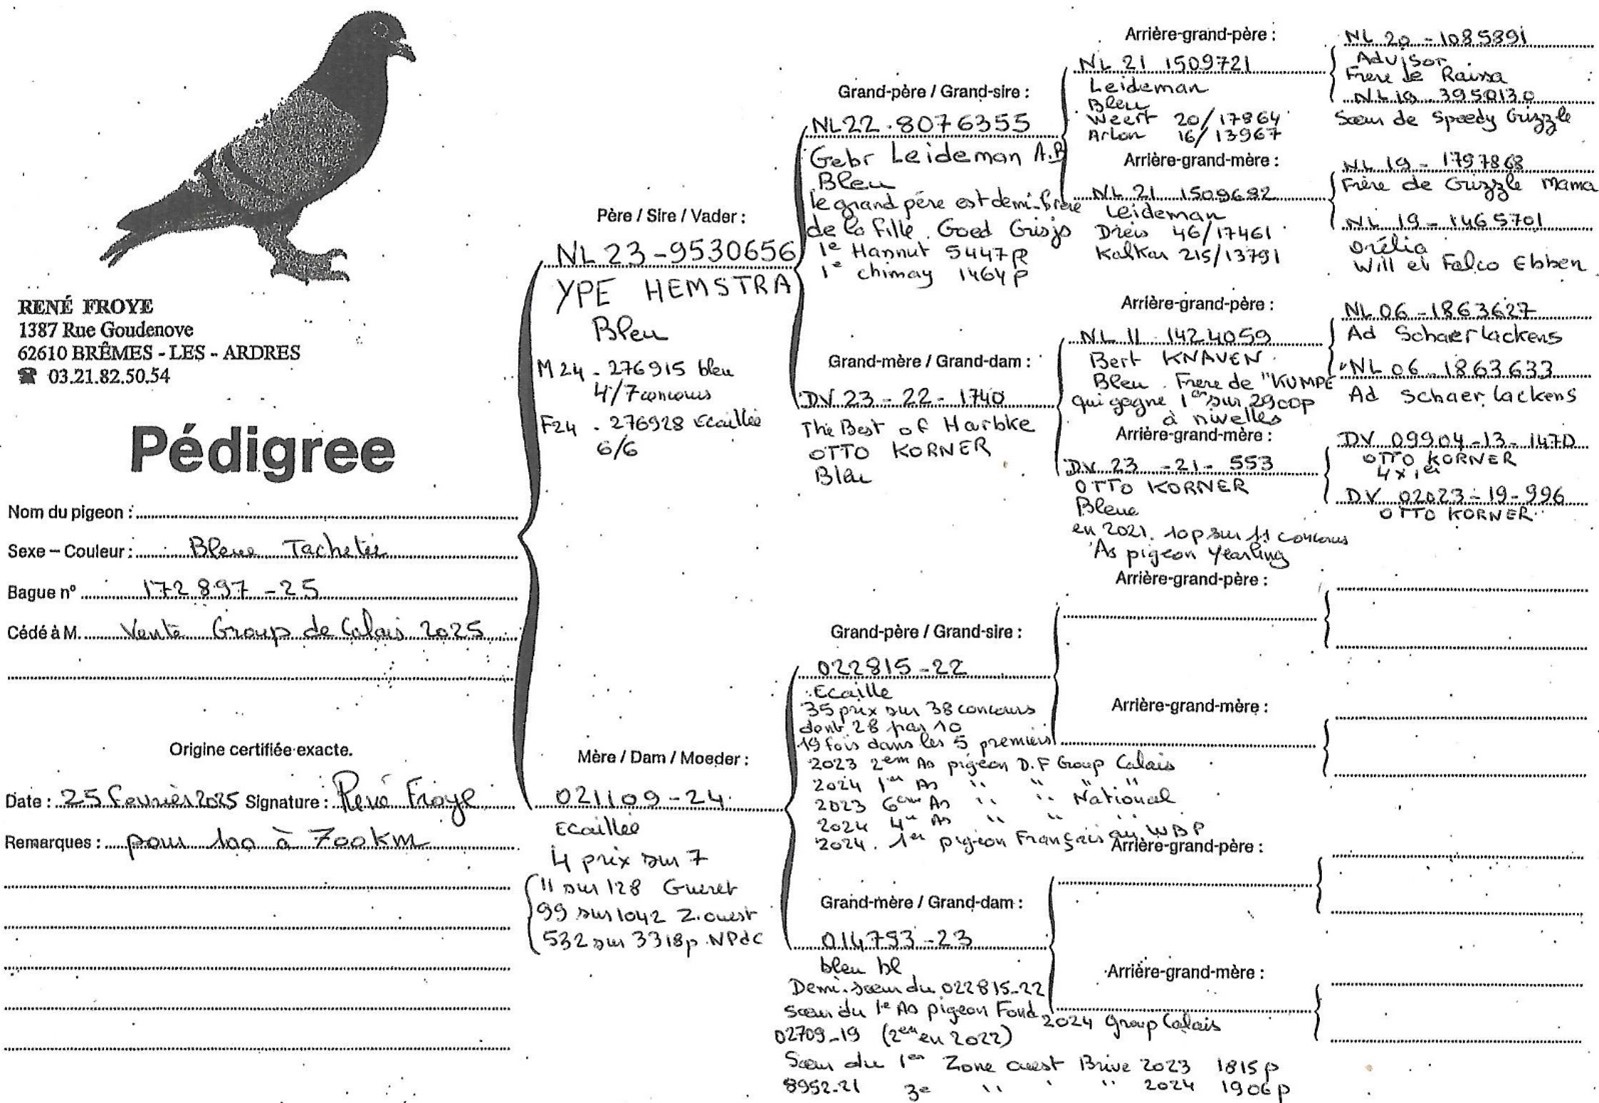 RENÉ FROYE
1387 Rue Goudenove
62610 BRÊMES - LES - ARDRES
☎ 03.21.82.50.54
Pédigree
Nom du pigeon :
Sexe – Couleur : Bleue Tachetée
Bague n° 172897-25
Cédé à M. Vente Group de Calais 2025
Origine certifiée exacte.
Date : 25 fevrier 2025 Signature : René Froye
Remarques : pour 100 à 700km
Père / Sire / Vader :
NL 23-9530656
YPE HEMSTRA
Bleu
M24 - 276915 bleu
4/7 concours
F24 - 276928 Ecaillée
6/6
Mère / Dam / Moeder :
021109-24
Ecaillée
4 prix sur 7
11 sur 128 Gueret
99 sur 1042 Z.ouest
532 sur 3318p NPdC
Grand-père / Grand-sire :
NL22-8076355
Gebr Leideman A.B
Bleu
le grand père est demi-frère
de la fille Goed Grisjs
1e Hannut 5447p
1e chimay 1464p
Grand-mère / Grand-dam :
DV 23-22-1740
The Best of Harbke
OTTO KORNER
Bleu
Grand-père / Grand-sire :
022815-22
Ecaille
35 prix sur 38 concours
dont 28 par 10
19 fois dans les 5 premiers
2023 2em As pigeon D.F Group Calais
2024 1er As " " " "
2023 6eme As " " National
2024 4e As " " "
2024. 1er pigeon Français au WBP
Grand-mère / Grand-dam :
014793-23
bleu bl
Demi-sœur du 022815-22
Sœur du 1e As pigeon Fond 2024 Group Calais
02709-19 (2em en 2022)
Sœur du 1er Zone ouest Brive 2023 1815p
8952-21 3e " " " 2024 1906p
Arrière-grand-père :
NL 21 1509721
Leideman
Bleu
Weert 20/17864
Arlon 16/13967
Arrière-grand-mère :
NL 21 1509682
Leideman
Dreis 46/17461
Kalkar 215/13791
Arrière-grand-père :
NL 11 1424059
Bert KNAVEN
Bleu. Frere de "KUMPE
qui gagne 1er sur 2900p
à nivelles
Arrière-grand-mère :
DV 23-21-553
OTTO KORNER
Bleue
en 2021. 10p sur 11 concours
As pigeon Yearling
Arrière-grand-père :
Arrière-grand-mère :
Arrière-grand-père :
Arrière-grand-mère :
NL 20-1085891
Advisor
Frere de Raissa
NL 19-3950130
Sœur de Speedy Grizzle
NL 19-1797868
Frère de Grizzle Mama
NL 19-1465701
Orélia
Will et Falco Ebben
NL 06-1863627
Ad Schaerlackens
NL 06-1863633
Ad Schaerlackens
DV 09904-13-1470
OTTO KORNER
4x1er
DV 02023-19-996
OTTO KORNER